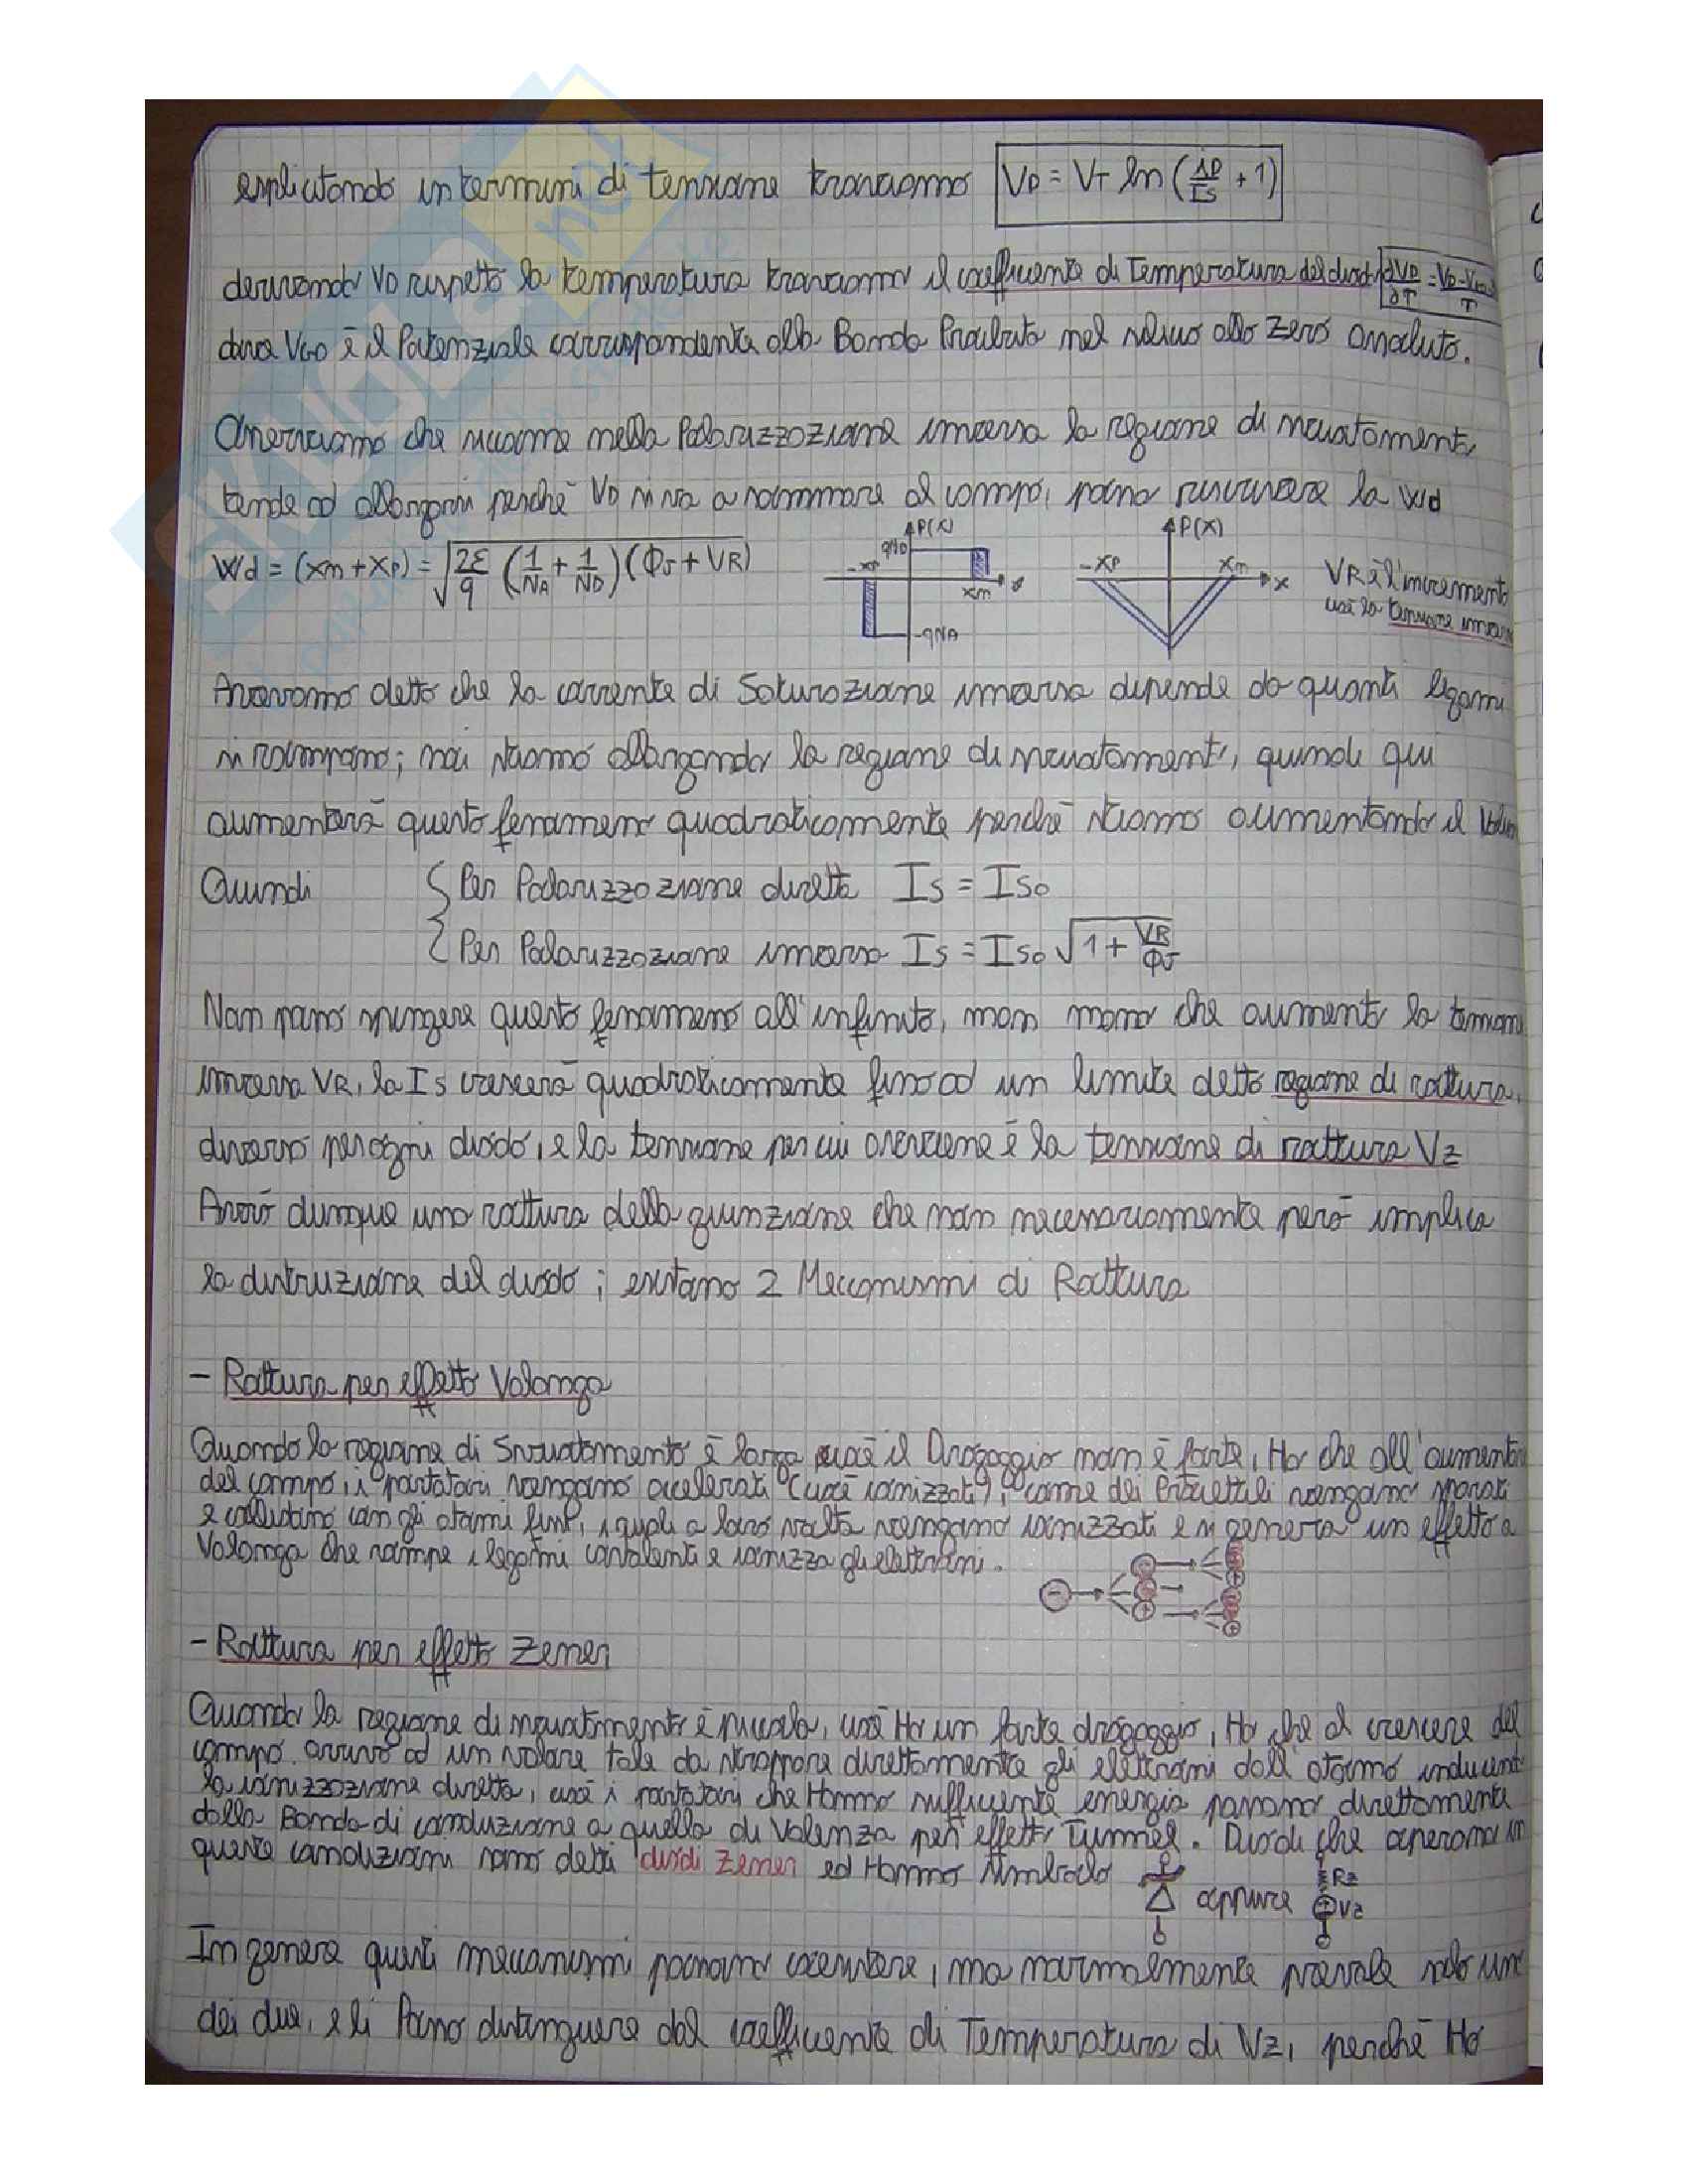 esplicitando in termini di tensione troviamo VD = VT ln (iD/IS + 1)
derivando VD rispetto la temperatura troviamo il coefficiente di Temperatura del diodo ∂VD/∂T = VD-VGO/T
dove VGO è il Potenziale corrispondente alla Banda Proibita nel silicio allo Zero assoluto.
Osserviamo che siccome nella Polarizzazione inversa la regione di svuotamento
tende ad allargarsi perchè VD si va a sommare al campo, posso riscrivere la Wd
Wd = (xm + xp) = √2ε/q (1/NA + 1/ND) (ΦJ + VR)
P(X) qND -xp xm x -qNA
P(X) -xp xm x
VR è l'incremento
cioè la tensione inversa
Avevamo detto che la corrente di Saturazione inversa dipende da quanti legami
si rompono; noi stiamo allargando la regione di svuotamento, quindi qui
aumenterà questo fenomeno quadraticamente perchè stiamo aumentando il Volume
Quindi { Per Polarizzazione diretta IS = ISO
{ Per Polarizzazione inversa IS = ISO √1 + VR/ΦJ
Non posso spingere questo fenomeno all'infinito, man mano che aumento la tensione
inversa VR, la IS crescerà quadraticamente fino ad un limite detto regione di rottura,
diverso per ogni diodo, e la tensione per cui avviene è la tensione di rottura VZ
Avrò dunque una rottura della giunzione che non necessariamente però implica
la distruzione del diodo; esistono 2 Meccanismi di Rottura
- Rottura per effetto Valanga
Quando la regione di Svuotamento è larga cioè il Drogaggio non è forte, Ho che all'aumentare
del campo, i portatori vengono accelerati (cioè ionizzati), come dei Proiettili vengono sparati
e collidono con gli atomi fissi, i quali a loro volta vengono ionizzati e si genera un effetto a
Valanga che rompe i legami covalenti e ionizza gli elettroni.
- Rottura per effetto Zener
Quando la regione di svuotamento è piccola, cioè Ho un forte drogaggio, Ho che al crescere del
campo arrivo ad un valore tale da strappare direttamente gli elettroni dall'atomo inducendo
la ionizzazione diretta, cioè i portatori che Hanno sufficiente energia passano direttamente
dalla Banda di conduzione a quella di Valenza per effetto Tunnel. Diodi che operano in
queste condizioni sono detti diodi Zener ed Hanno simbolo oppure RZ VZ
In genere questi meccanismi possono coesistere, ma normalmente prevale solo uno
dei due, e li Posso distinguere dal coefficiente di Temperatura di VZ, perchè Ho